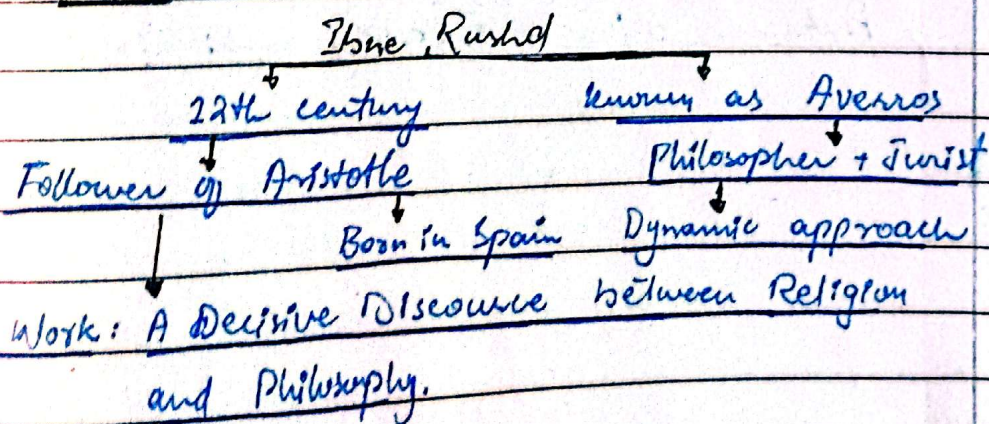 Ibne Rushd
12th century known as Averros
Follower of Aristotle Philosopher + Jurist
Born in Spain Dynamic approach
Work: A Decisive Discource between Religion
and Philosophy.